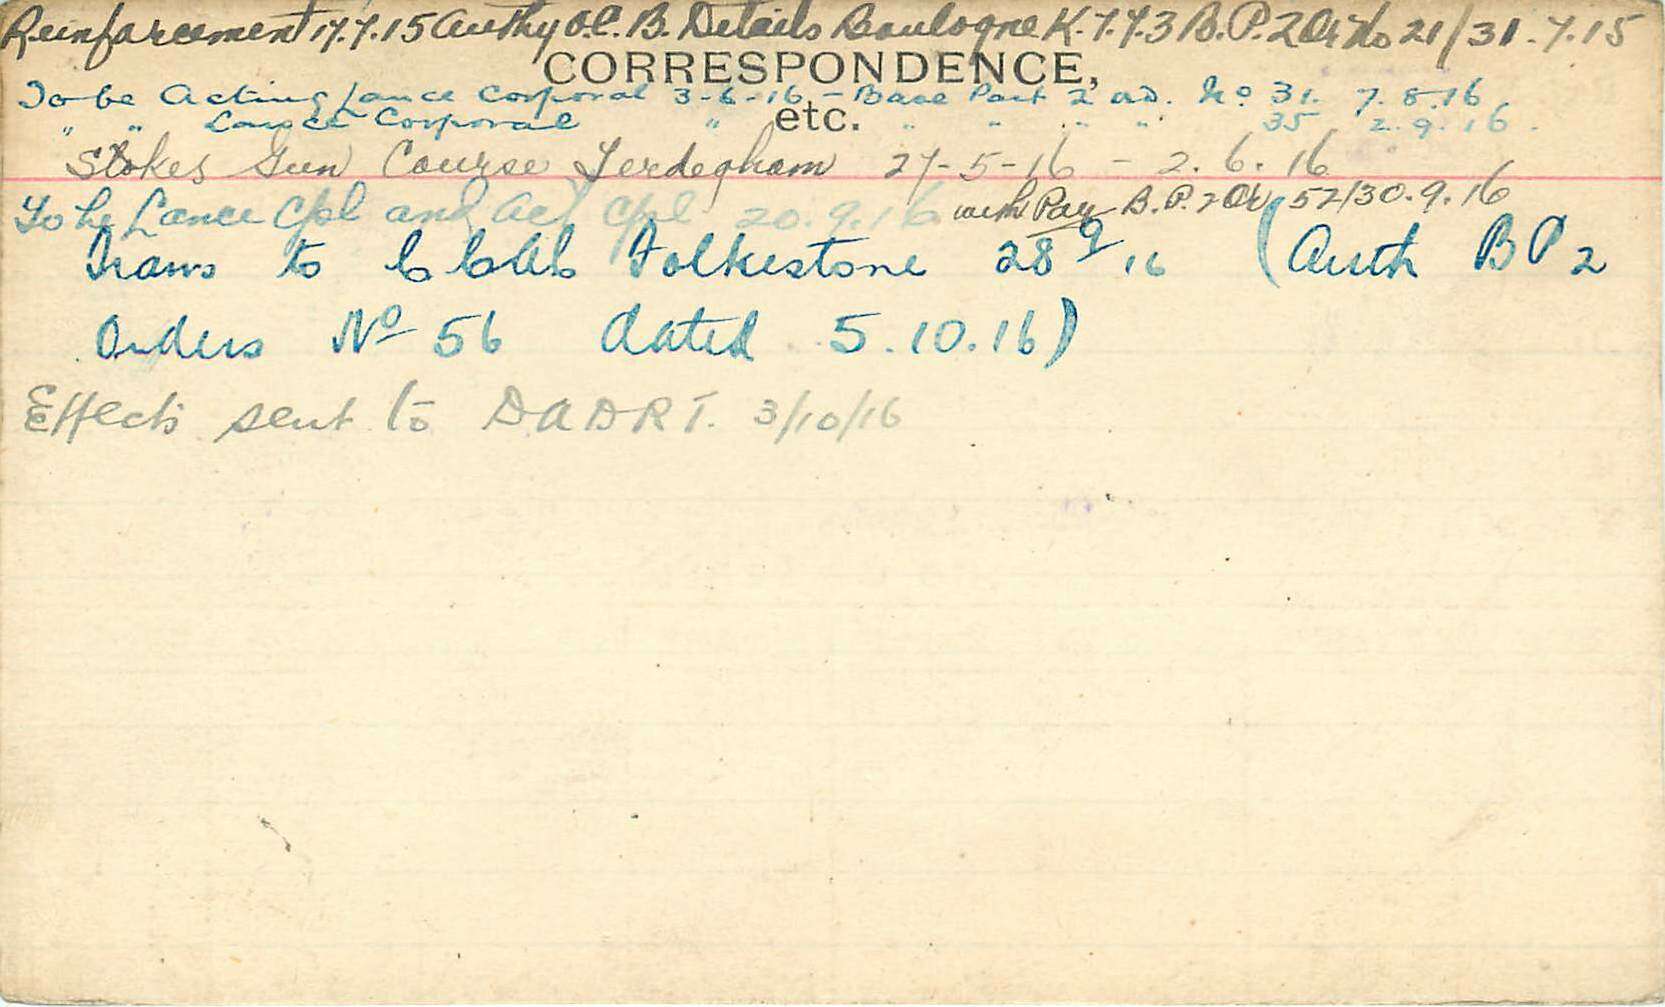 Reinforcement 17.7.15 Authy O.C. B. Details Boulogne K.7.7.3 B.P. 2 Or No 21/31.7.15
CORRESPONDENCE,
To be Acting Lance Corporal 3-6-16 - Base Part 2 Od. No 31. 7.8.16
etc.
" " Lance Corporal " " " " " 35 2.9.16.
Stokes Gun Course Terdeghem 27-5-16 - 2.6.16
To be Lance Cpl and Act Cpl 20.9.16 with Pay B.P. 2 Or 52/30.9.16
Trans to C.C.A.C. Folkestone 28 9 16 (Auth B P 2
Orders No 56 dated 5.10.16)
Effects sent to DADRT. 3/10/16